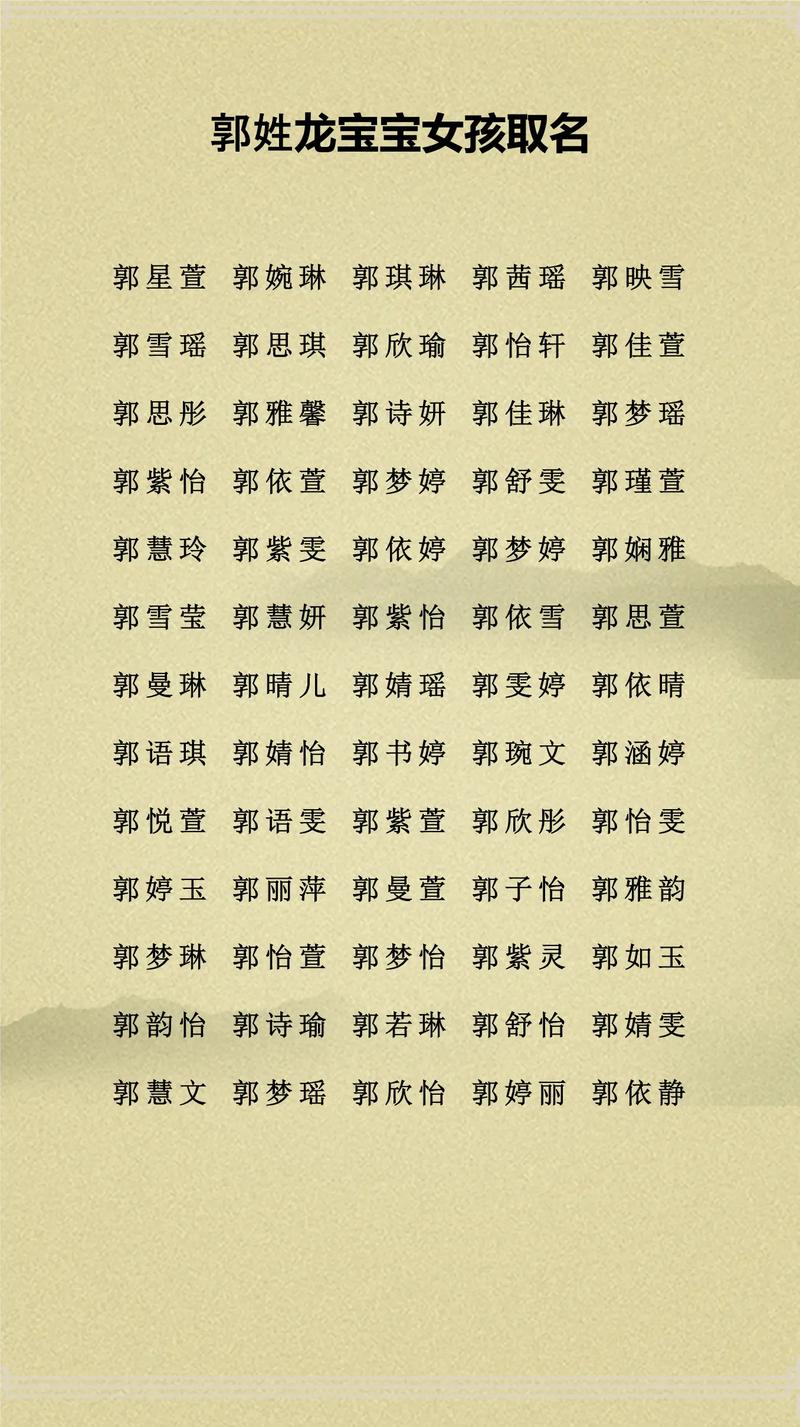 郭姓龙宝宝女孩取名
郭星萱 郭婉琳 郭琪琳 郭茜瑶 郭映雪
郭雪瑶 郭思琪 郭欣瑜 郭怡轩 郭佳萱
郭思彤 郭雅馨 郭诗妍 郭佳琳 郭梦瑶
郭紫怡 郭依萱 郭梦婷 郭舒雯 郭瑾萱
郭慧玲 郭紫雯 郭依婷 郭梦婷 郭娴雅
郭雪莹 郭慧妍 郭紫怡 郭依雪 郭思萱
郭曼琳 郭晴儿 郭婧瑶 郭雯婷 郭依晴
郭语琪 郭婧怡 郭书婷 郭琬文 郭涵婷
郭悦萱 郭语雯 郭紫萱 郭欣彤 郭怡雯
郭婷玉 郭丽萍 郭曼萱 郭子怡 郭雅韵
郭梦琳 郭怡萱 郭梦怡 郭紫灵 郭如玉
郭韵怡 郭诗瑜 郭若琳 郭舒怡 郭婧雯
郭慧文 郭梦瑶 郭欣怡 郭婷丽 郭依静